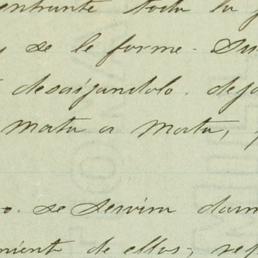 entrante toda la
se le forme. Su
desaijandolo. deja
mata a mata,
o. se servira dar
miento de ellos, re